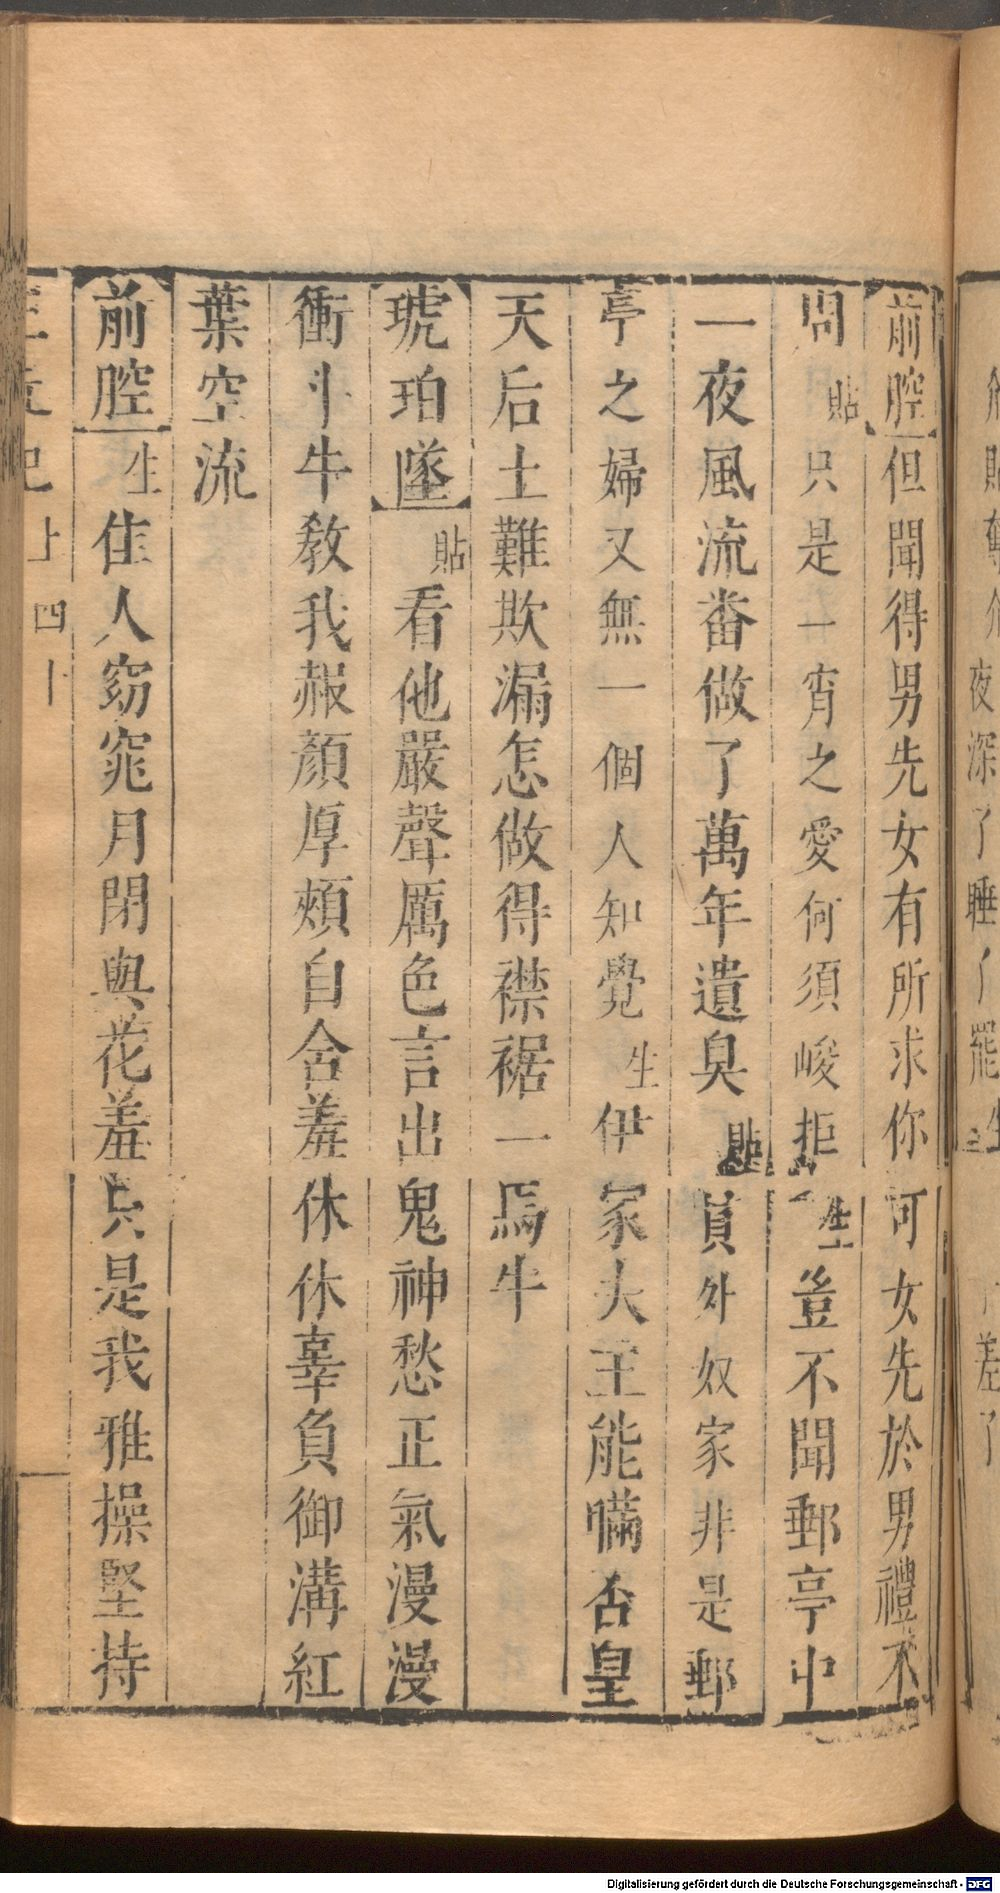 前腔但聞得男先女有所求你可女先於男禮不
問貼只是一宵之愛何須峻拒生豈不聞郵亭中
一夜風流畨做了萬年遺臭貼員外奴家非是郵
亭之婦又無一個人知覺生伊家大王能瞞否皇
天后土難欺漏怎做得襟裾一馬牛
琥珀墜貼看他嚴聲厲色言出鬼神愁正氣漫漫
衝斗牛教我赧顏厚頰自含羞休休休辜負御溝紅
葉空流
前腔生佳人窈窕月閉與花羞只是我雅操堅持
記上四十
夜深了睡了罷生
差了
Digitalisierung gefördert durch die Deutsche Forschungsgemeinschaft - DFG